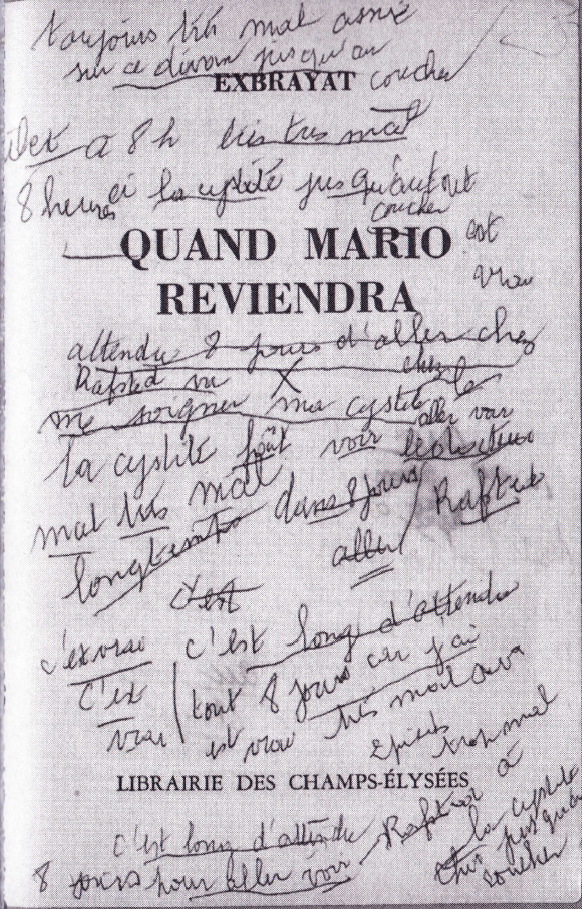 toujours très mal assise
sur ce divan jusqu'au
EXBRAYAT coucher
a 8h très mal
8 heures la cystite jusqu'au
coucher est
QUAND MARIO
vrai
REVIENDRA
attendre 8 jours d'aller chez
me soigner ma cystite le
aller voir
la cystite voir
mal très mal dans 8 jours
longtemps aller
c'est
c'est vrai c'est long d'attendre
c'est tout 8 jours car j'ai
vrai est vrai très mal
trop mal
LIBRAIRIE DES CHAMPS-ÉLYSÉES à
c'est long d'attendre la cystite
8 jours pour aller voir chez jusqu'au
coucher